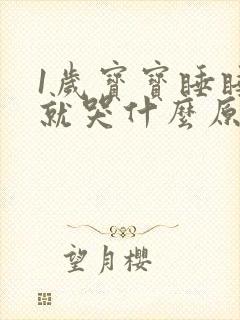 1歲寶寶睡睡
就哭什麼原
望月櫻